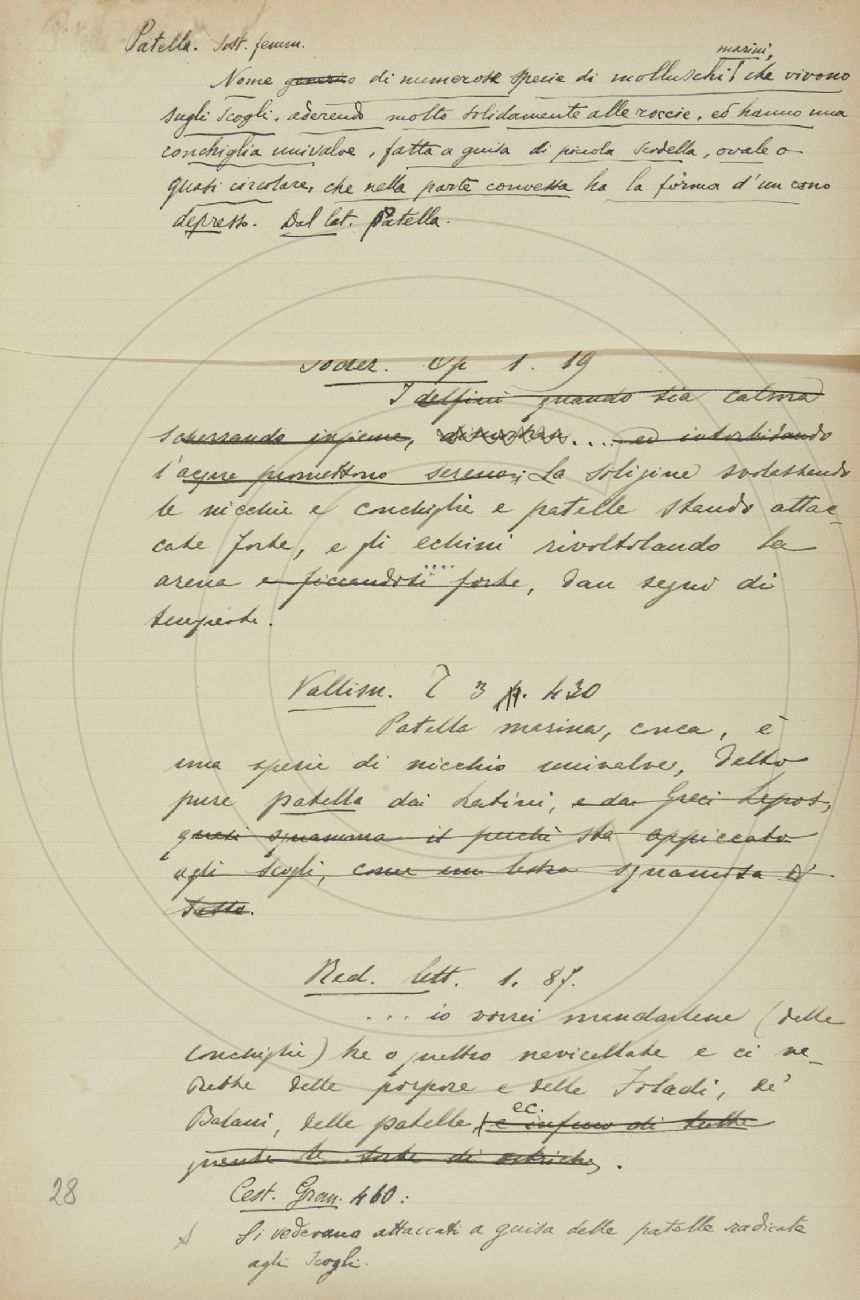 Patella. Sost. femm.
marini,
Nome genero di numerose specie di molluschi che vivono
sugli scogli, aderendo molto solidamente alle roccie, ed hanno una
conchiglia univalve, fatta a guisa di piccola scodella, ovale o
quasi circolare, che nella parte convessa ha la forma d'un cono
depresso. Dal lat. Patella.
Soder. Op 1. 19
I delfini quando sia calma
scherzando insieme, .... ed intorbidando
l'acque promettono sereno; La soligine svolastando
le nicchie e conchiglie e patelle stando attac-
cate forte, e gli echini rivoltolando la
arena e ficcandosi forte, dan segno di
tempeste.
Vallisn. T 3 p. 430
Patella marina, conca, è
una specie di nicchio univalve, detto
pure patella dai Latini, e dai Greci Lepas,
quasi squamma perchè sta appiccato
agli scogli, come una testa squamosa d'
sasso.
Red. lett. 1. 87.
... io vorrei mandartene (delle
conchiglie) tre o quattro nevicellate e ci ve-
drebbe delle porpore e delle Foladi, de'
Balani, delle patelle, ec. e infino di tutte
quante le sorte di ostriche.
28
Cest. Gran. 460:
Si vedevano attaccati a guisa delle patelle radicate
agli scogli.